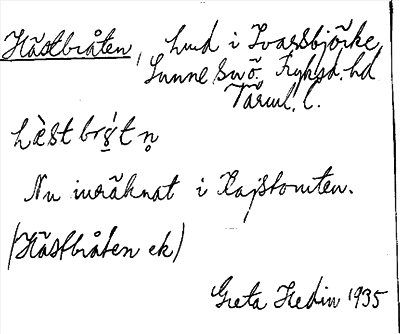 Hästbråten, hmd i Ivarsbjörke,
Sunne swö. Fryksd. hd
Värml. l.
hɛ̀stbrɷ́tn̥
Nu inräknat i Rapstomten.
(Hästbråten ek)
Greta Hedin 1935